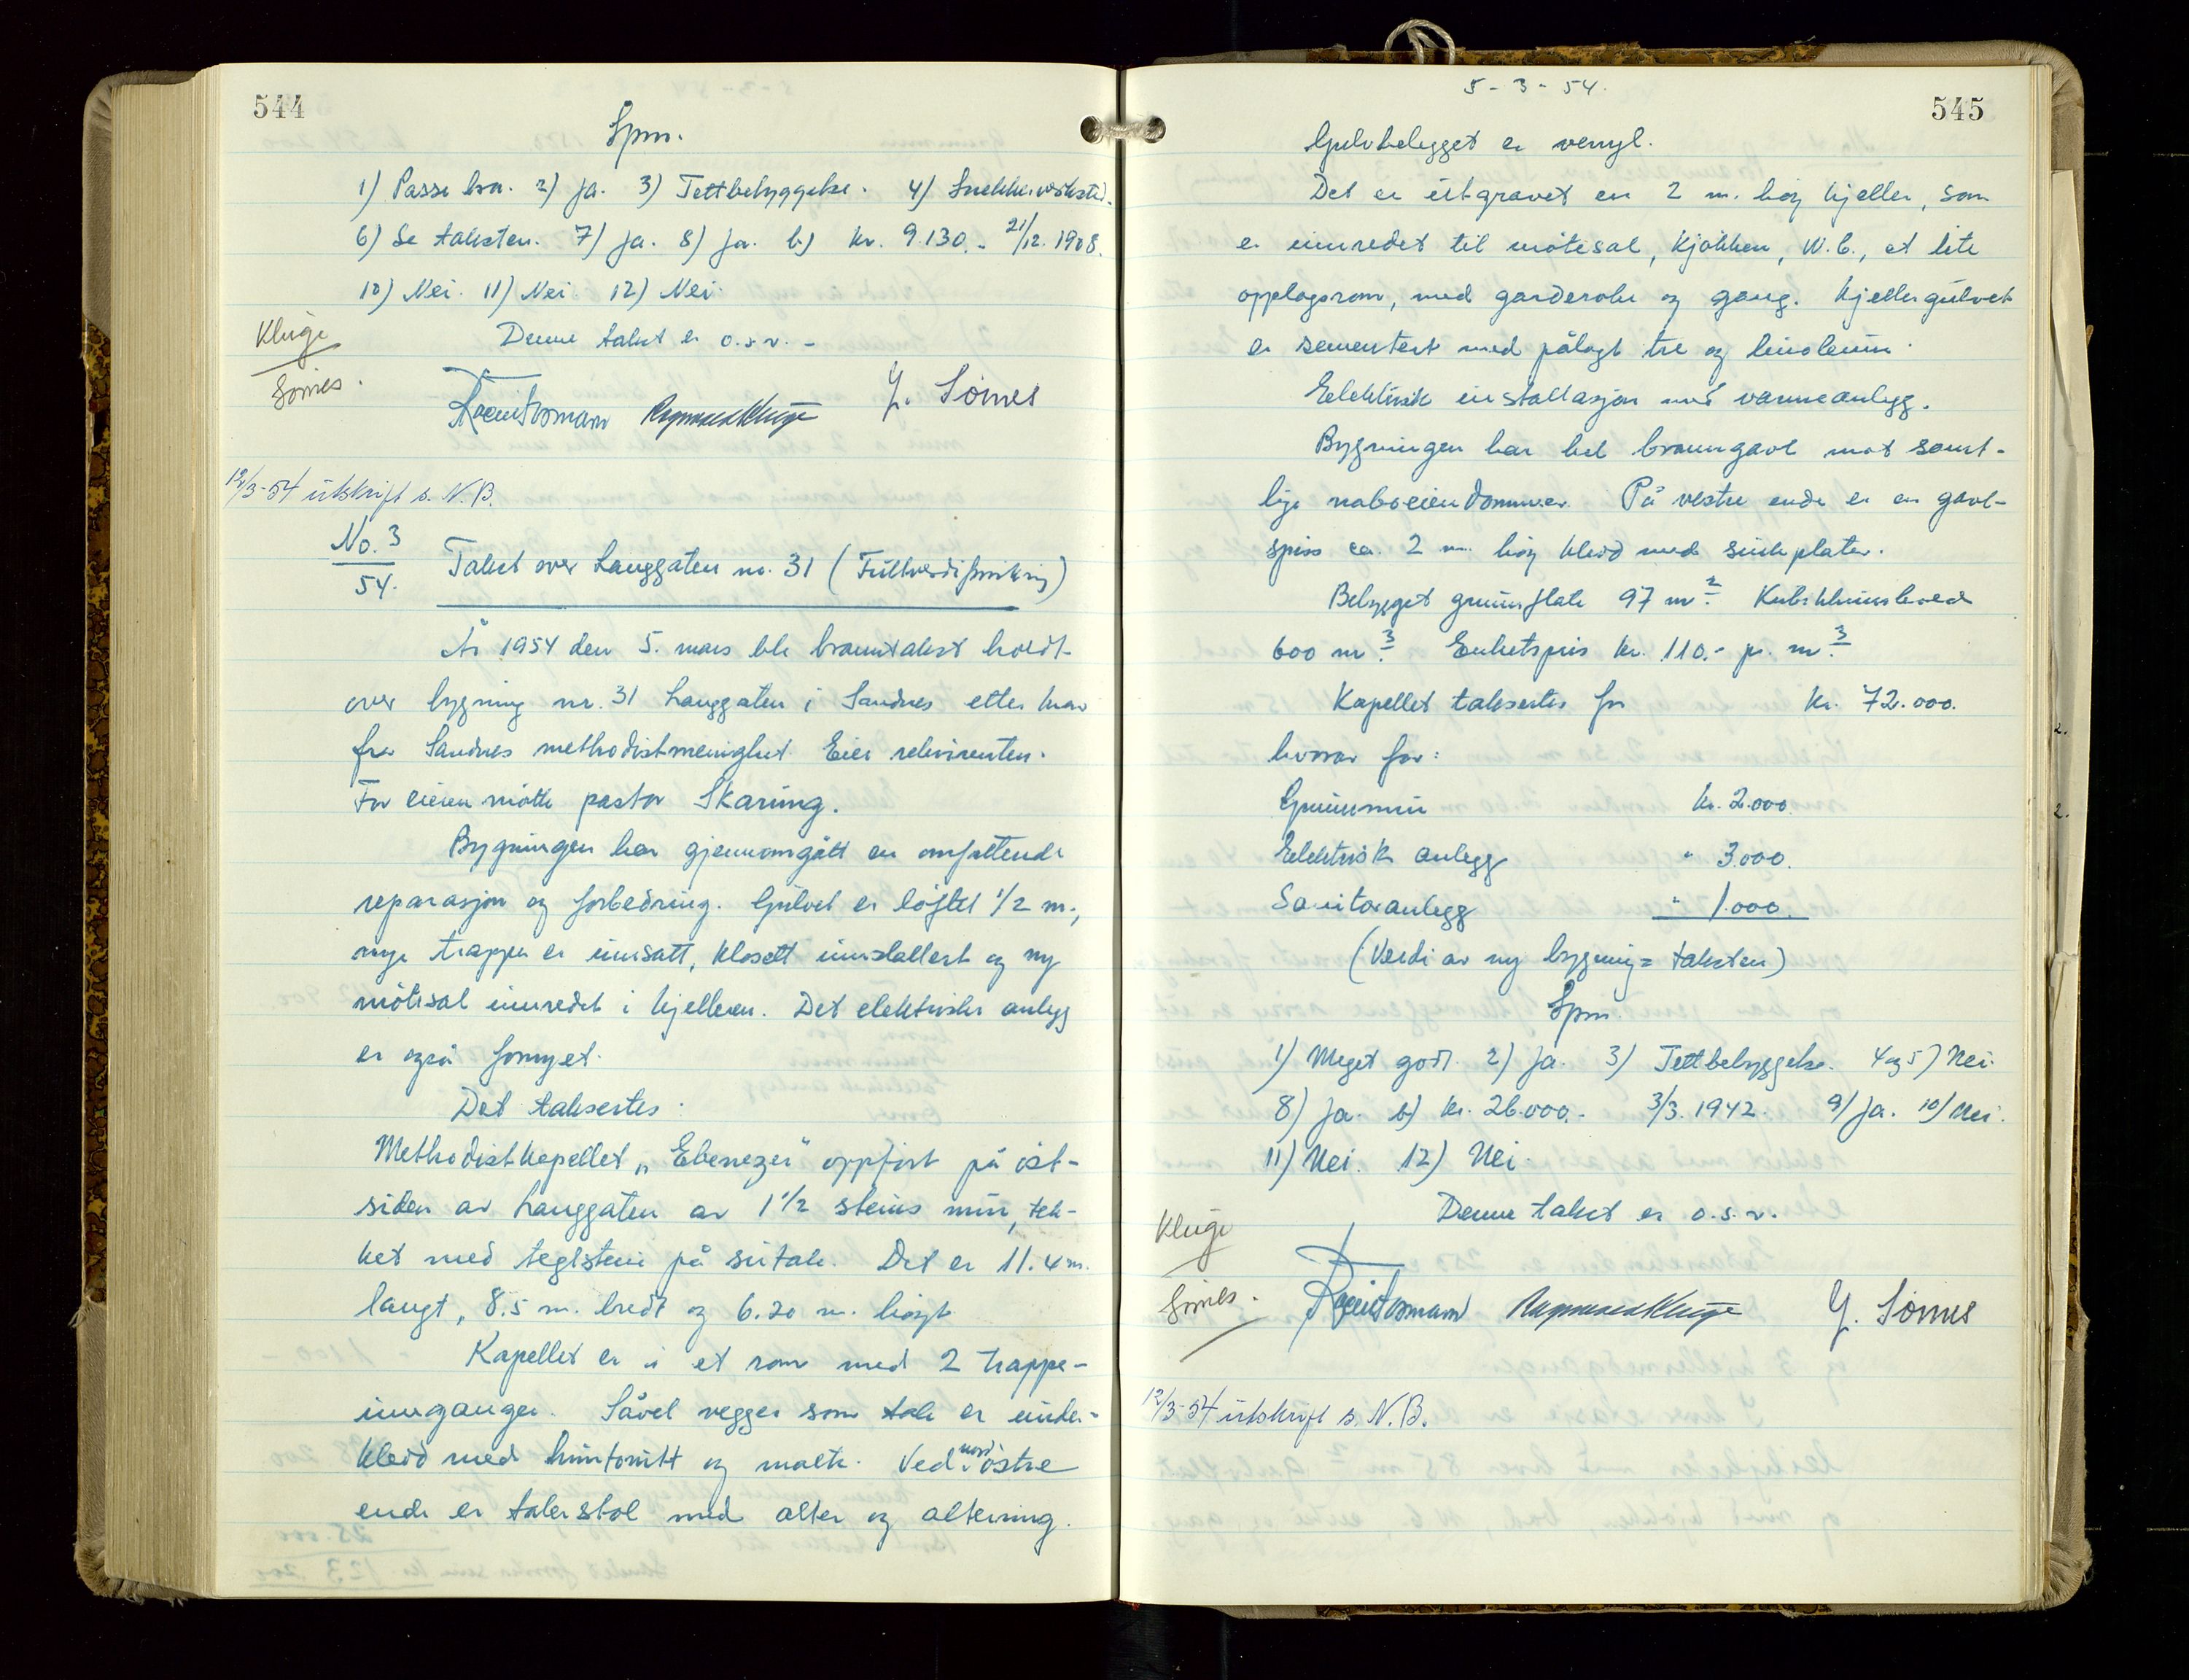 544
Spm.
1) Passe bra. 2) Ja. 3) Tettbebyggelse. 4) Snekkerverksted.
6) Se taksten. 7) Ja. 8) Ja. b) kr. 9.130.- 21/12. 1908.
10) Nei. 11) Nei 12) Nei.
Denne takst er o.s.v. -
Kluge
Sømes.
Y. Sömes
12/3-54 utskrift s. N.B.
No. 3
54.
Takst over Langgaten no. 31 (Fullverdiforsikring)
År 1954 den 5. mars ble branntakst holdt
over bygning nr. 31 Langgaten i Sandnes etter krav
fra Sandnes methodistmenighet. Eier rekvirenten.
For eieren møtte pastor Skaring.
Bygningen har gjennomgått en omfattende
reparasjon og forbedring. Gulvet er løftet 1/2 m.,
nye trapper er innsatt, klosett innstallert og ny
møtesal innredet i kjelleren. Det elektriske anlegg
er også fornyet.
Det takseres:
Methodistkapellet „Ebenezer" oppført på øst-
siden av Langgaten av 1 1/2 steins mur, tek-
ket med teglstein på sutak. Det er 11.4 m.
langt, 8.5 m. bredt og 6.20 m. høyt
Kapellet er i et rom med 2 trappe-
innganger. Såvel vegger som tak er under-
kledd med huntonitt og malte. Ved nordøstre
ende er talerstol med alter og altering.
545
5 - 3 - 54.
Gulvbelegget er venyl.
Det er utgravet en 2 m. høy kjeller, som
er innredet til møtesal, kjøkken, W.C., et lite
opplagsrom, med garderobe og gang. Kjellergulvet
er sementert med pålagt tre og linoleum.
Elektrisk installasjon med varmeanlegg.
Bygningen har hel branngavl mot samt-
lige naboeiendommer. På vestre ende er en gavl-
spiss ca. 2 m. høy kledd med sinkplater.
Bebygget grunnflate 97 m2. Kubikkinnhold
600 m3. Enhetspris kr. 110.- pr. m3.
Kapellet takseres for kr. 72.000.
hvorav for:
Grunnmur kr. 2.000
Elektrisk anlegg " 3.000.
Sanitæranlegg " 1.000.
(Verdi av ny bygning = taksten)
Spm.
1) Meget god. 2) Ja. 3) Tettbebyggelse. 4 og 5) Nei.
8) Ja. b) kr. 26.000.- 3/3. 1942. 9) Ja. 10) Nei.
11) Nei. 12) Nei.
Denne takst er o.s.v.
Kluge
Sømes.
Y. Sömes
12/3-54 utskrift s. N.B.